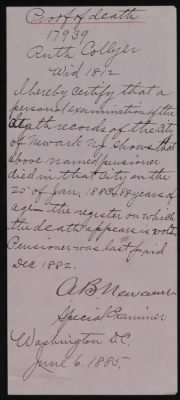 Proof of death
17939
Ruth Collyer
Wid 1812
I hereby certify that a
personal examination of the
death records of the City
of Newark N.J. shows that
above named pensioner
died in that City on the
20" of Jan. 1883, 88 years of
age the register on which
the death appears is
Pensioner was last paid
Dec 1882.
A B Newcomb
Special Examiner
Washington D.C.
June 6. 1885.